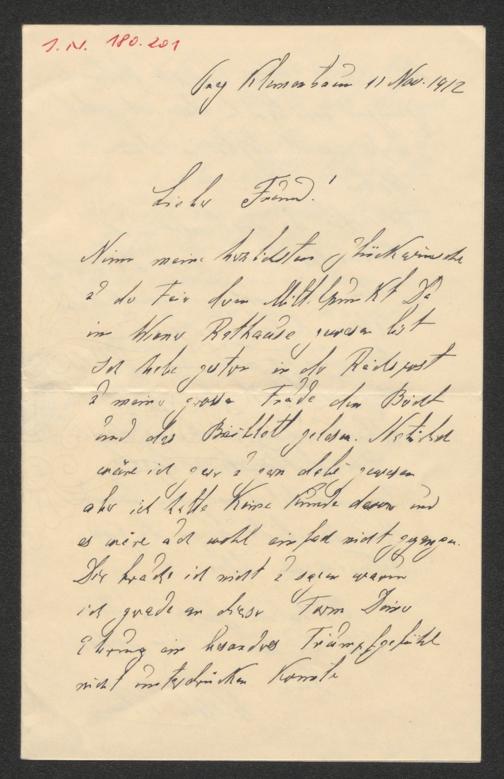 I.N. 180.201
11 Nov. 1912
Lieber Freund!
Nimm meine herzlichsten Glückwünsche
zu der Feier deren Mittelpunkt Du
im Wiener Rathause gewesen bist
Ich habe gestern in der Reichspost
zu meiner grossen Freude den Bericht
und das gelesen. Natürlich
wäre ich gern dabei gewesen
aber ich hatte keine Kunde davon und
es wäre auch wohl einfach nicht gegangen.
Dir brauche ich nicht zu sagen warum
ich grade an dieser Form Deiner
Ehrung ein besondres Triumpfgefühl
nicht unterdrücken konnte